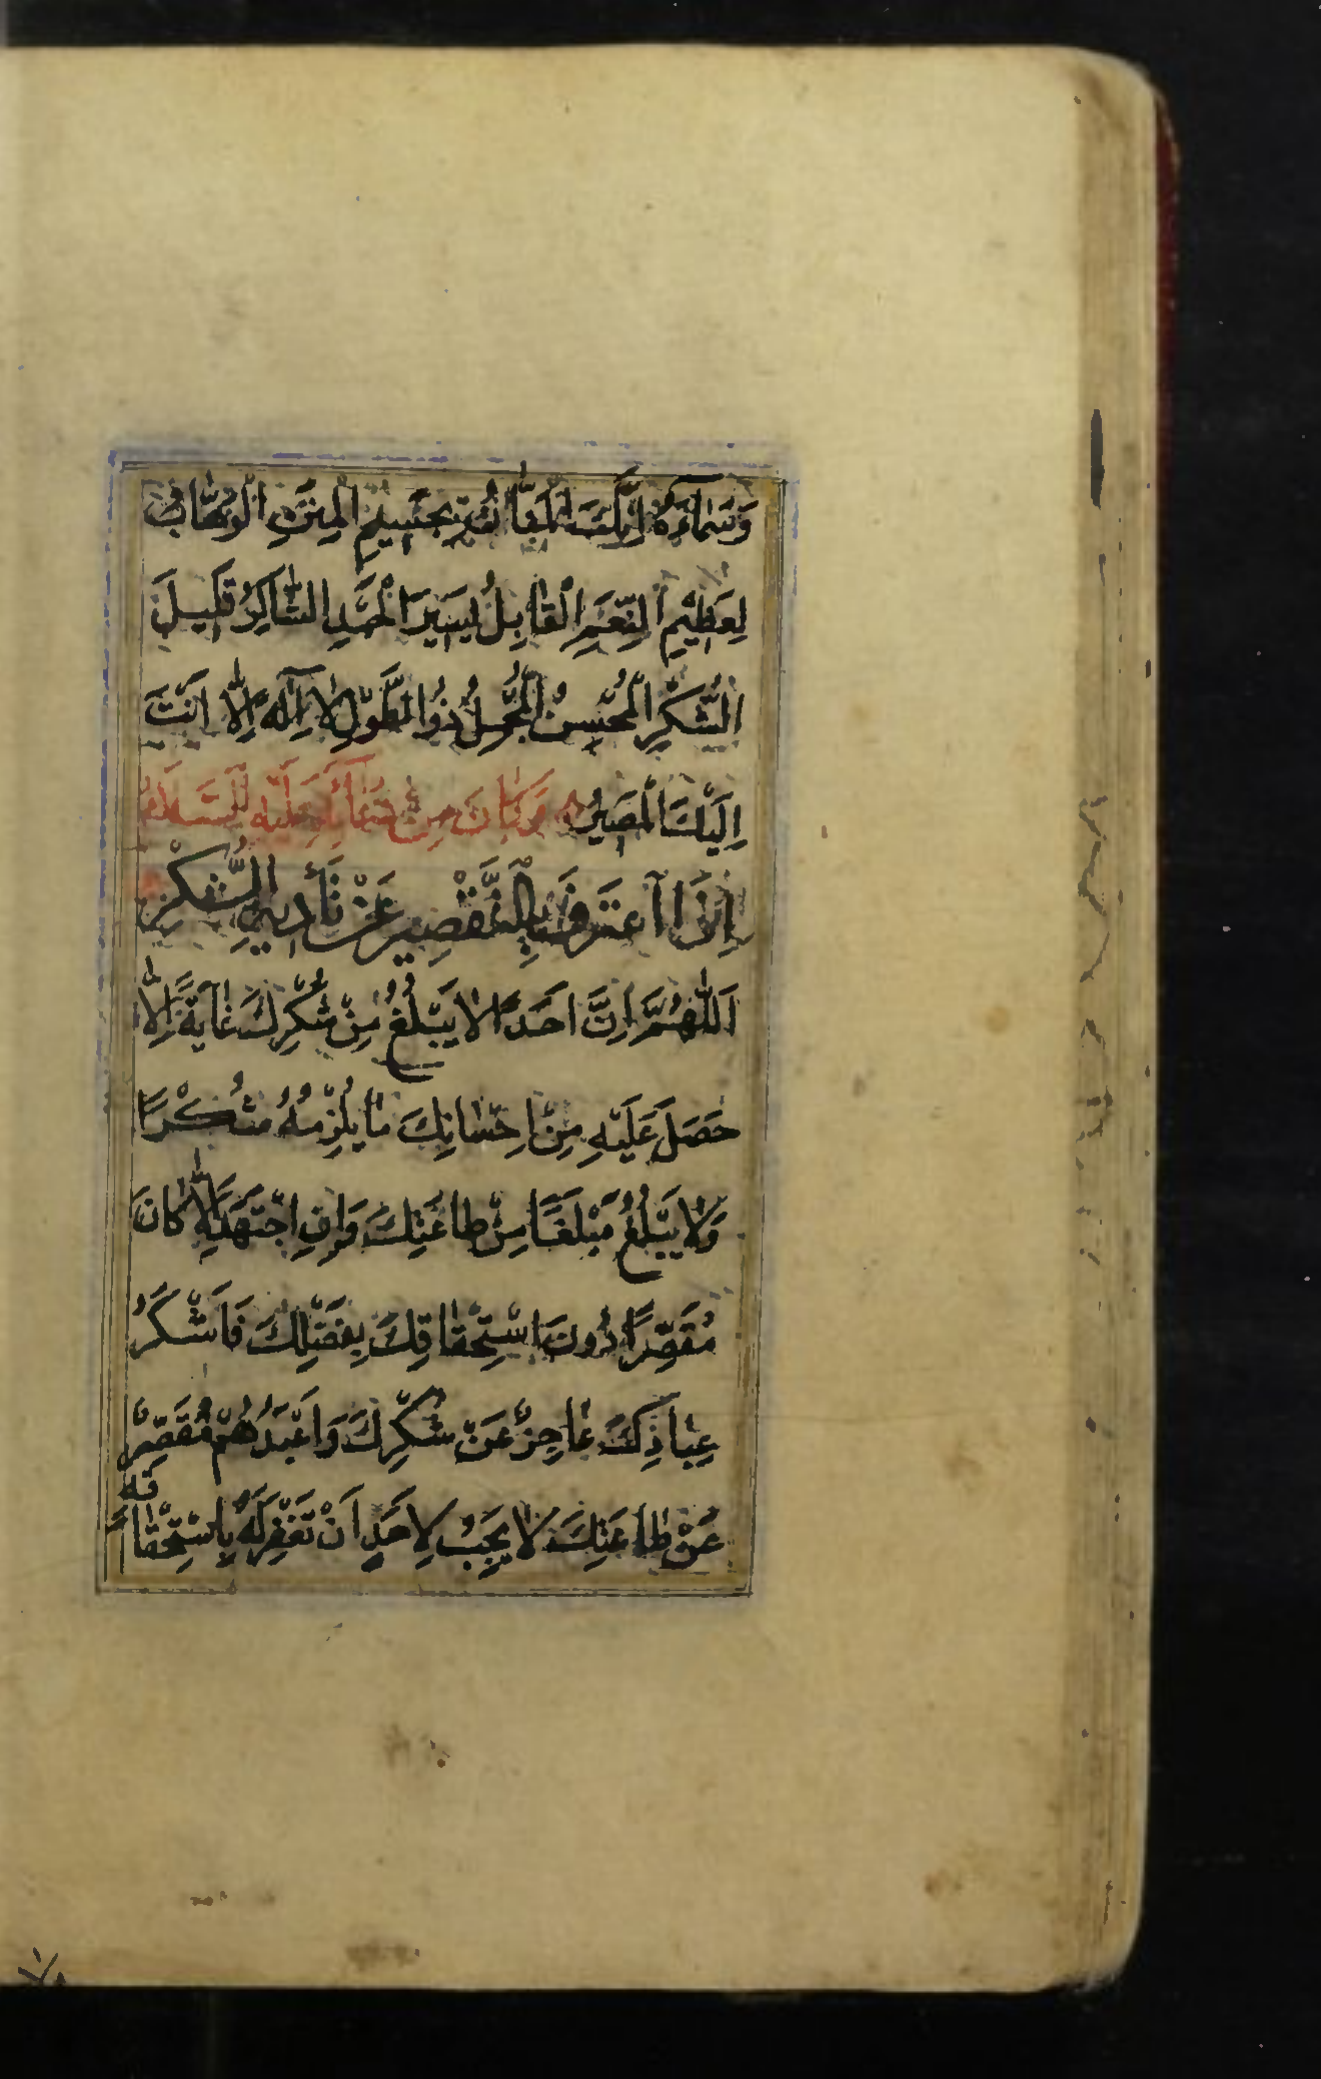 وَسَمَآءَهُ اِنَّكَ الْمَنَّانُ بِجَسِيمِ الْمِنَنِ الْوَهَّابُ
لِعَظِيمِ النِّعَمِ الْقَابِلُ يَسِيرَ الْحَمْدِ الشَّاكِرُ قَلِيلَ
الشُّكْرِ الْمُحْسِنُ الْمُجْمِلُ ذُو الطَّوْلِ لَا اِلٰهَ اِلَّا اَنْتَ
اِلَيْكَ الْمَصِيرُ وَكَانَ مِنْ دُعَآئِهِ عَلَيْهِ السَّلَامُ
اِذَا اعْتَرَفَ بِالتَّقْصِيرِ عَنْ تَأْدِيَةِ الشُّكْرِ
اَللّٰهُمَّ اِنَّ اَحَدًا لَا يَبْلُغُ مِنْ شُكْرِكَ غَايَةً اِلَّا
حَصَلَ عَلَيْهِ مِنْ اِحْسَانِكَ مَا يُلْزِمُهُ شُكْرًا
وَلَا يَبْلُغُ مَبْلَغًا مِنْ طَاعَتِكَ وَاِنِ اجْتَهَدَ اِلَّا كَانَ
مُقَصِّرًا دُونَ اسْتِحْقَاقِكَ بِفَضْلِكَ فَاَشْكَرُ
عِبَادِكَ عَاجِزٌ عَنْ شُكْرِكَ وَاَعْبَدُهُمْ مُقَصِّرٌ
عَنْ طَاعَتِكَ لَا يَجِبُ لِاَحَدٍ اَنْ تَغْفِرَ لَهُ بِاسْتِحْقَاقِهِ